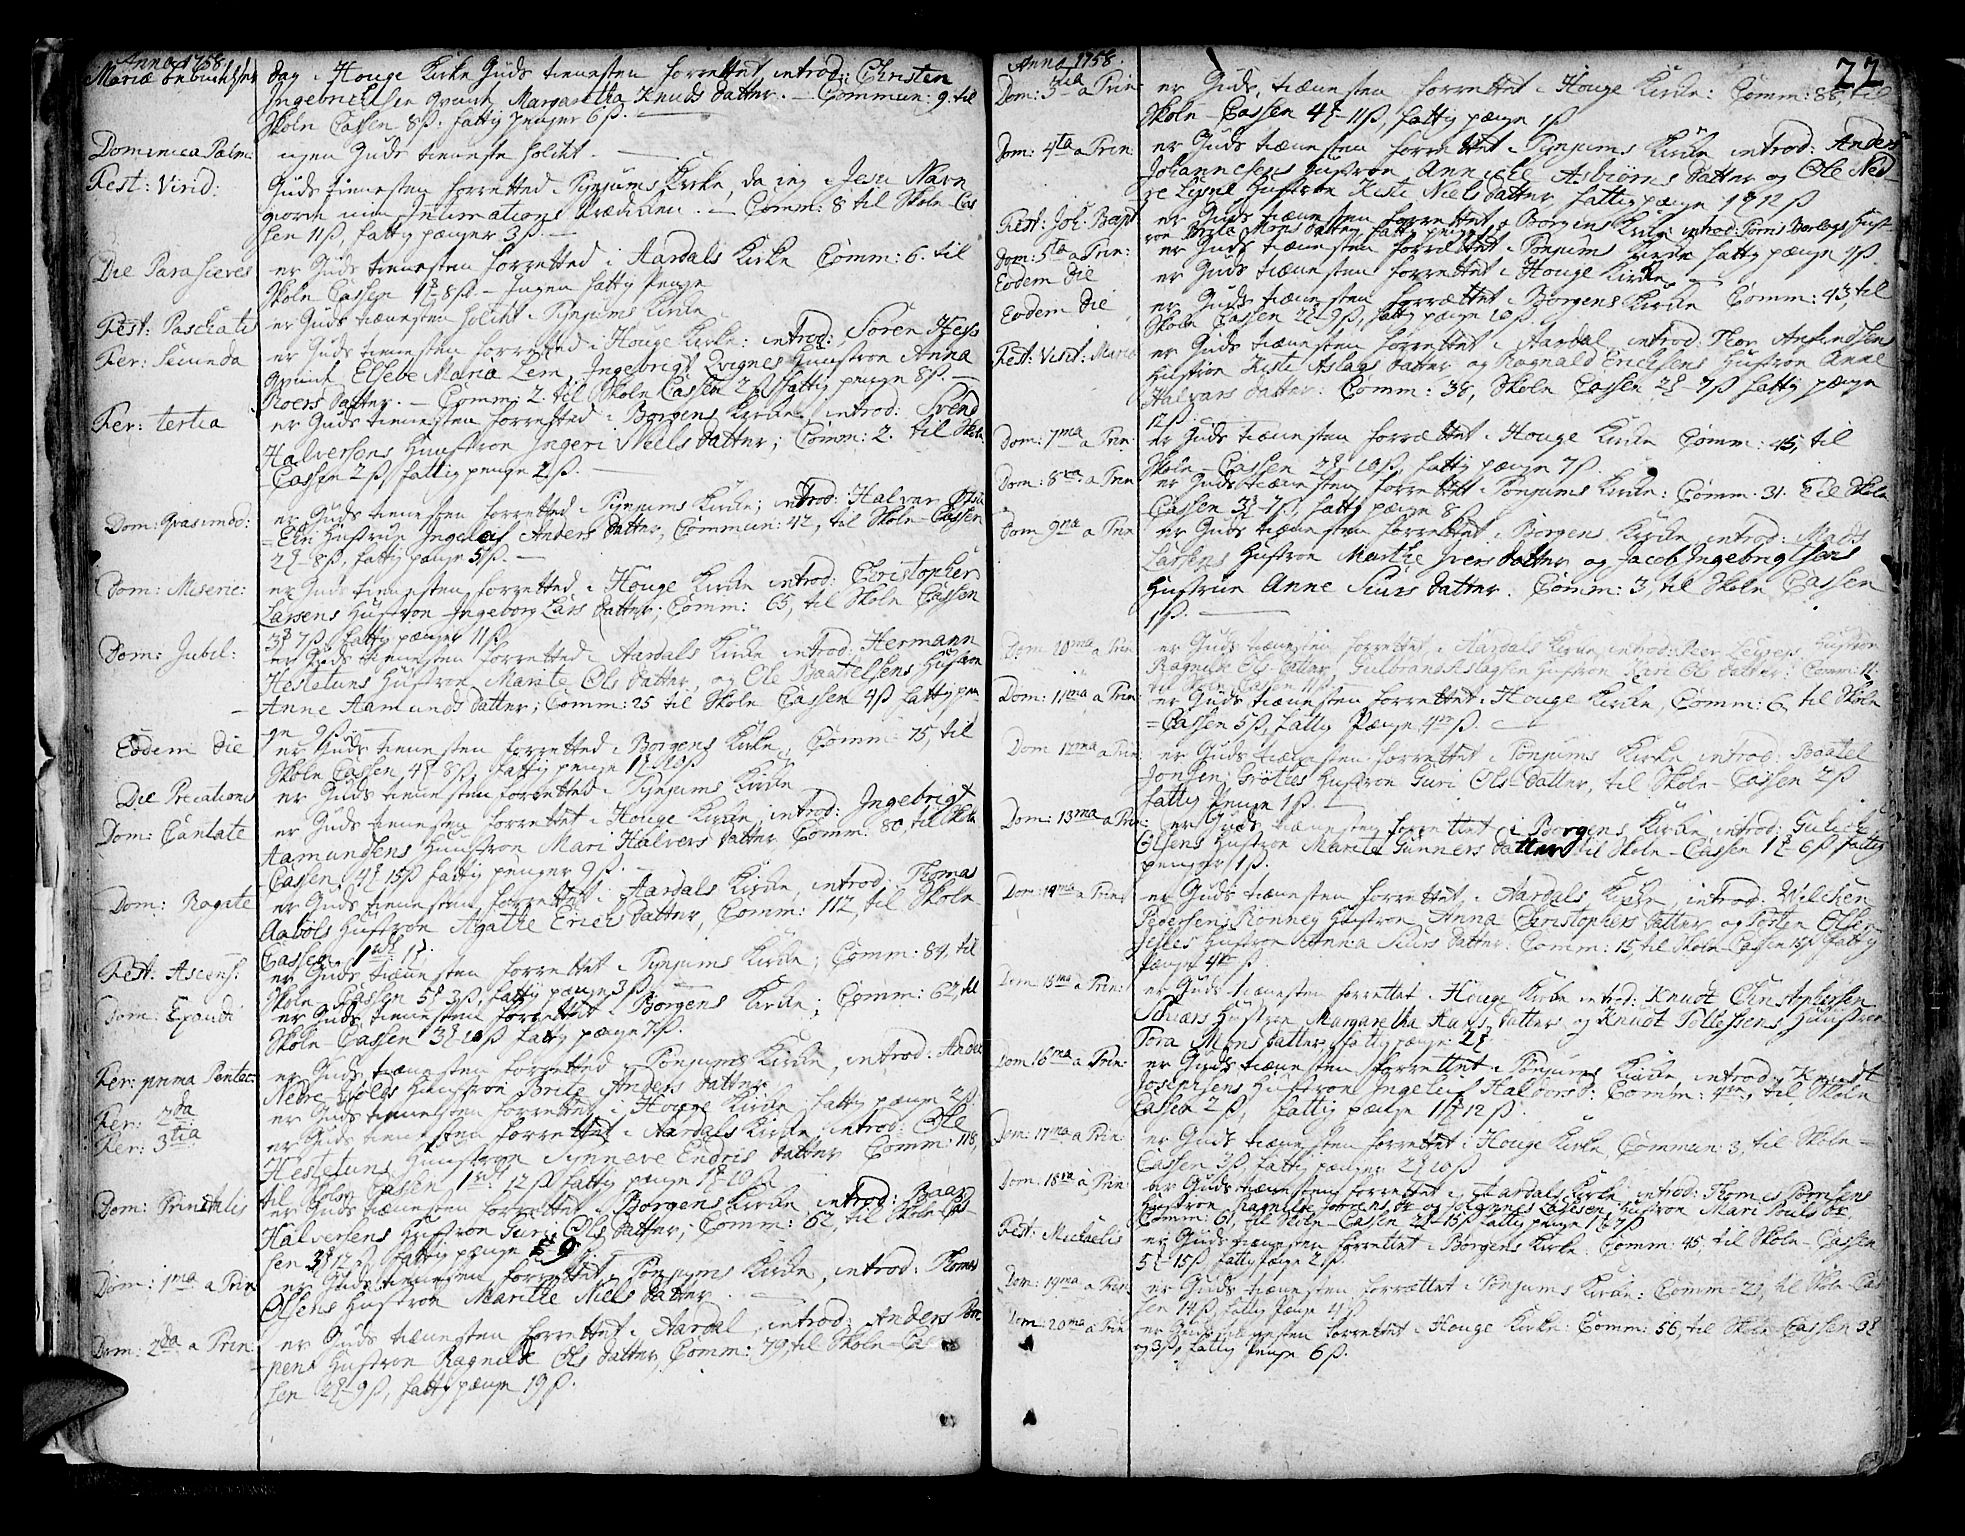 Anno 1758
Mariæ Bebudelses dag i Houge Kirke Guds tienesten forrettet, introd: Christen
Ingebrichtsen Qvinde Margaretha Knuds datter. — Commun: 9. til
Skole Cassen 8 ß. fattig penger 6 ß.
Dominica Palm: ingen Guds tieneste holdt.
Fest: Virid: Guds tienesten forretted i Tynjums Kirke, da jeg i Jesu Navn
giorde min Intimations Prædiken. — Comm: 8 til Skole Cas
sen 11 ß, fattig penger 3 ß.
Die Parasceves er Guds tienesten forretted i Aardals Kirke Comm: 6. til
Skole Cassen 8 ß — Ingen fattig Penge
Fest: Paschatis er Guds tienesten holdt i Tynjums Kirke
Fer: Secunda er Guds tienesten forretted i Houge Kirke: introd: Sören Hess
Qvinde Elsebe Maria Lem, Ingebrigt Qvignes Hustroe Anna
Roers datter. — Comm: 2 til Skole Cassen 2 ß fattig penge 8 ß.
Fer: tertia er Guds tienesten forretted i Borgens Kirke introd: Svend
Halversons Hustroe Ingeri Niels datter; Comm: 2. til Skole
Cassen 2 ß, fattig penge 2 ß.
Dom: Qvasimod: er Guds tienesten forretted i Tynjums Kirke; introd: Halvor
Hustrue Ingelef Anders datter, Commun: 42, til Skole-Cassen
8 ß, fattig penge 5 ß.
Dom: Miseric: er Guds tienesten forretted i Houge Kirke introd: Christopher
Larsens Hustroe Ingeborg Lars datter; Comm: 65, til Skole Cassen
7 ß, fattig penger 11 ß.
Dom: Jubil: er Guds tienesten forretted i Aardals Kirke introd: Hermann
Hestetuns Hustroe Marite Ols datter, og Ole Baatelsens Hustroe
Anne Aamunds datter; Comm: 25 til Skole Cassen 4 ß fattig pen
ge 9 ß.
Eodem Die er Guds tienesten forretted i Borgens Kirke; Comm: 75, til
Skole Cassen 8 ß, fattig penge
Die Precationis er Guds tienesten forretted i Tynjums Kirke
Dom: Cantate er Guds tienesten forrettet i Houge Kirke, introd: Ingebrigt
Aamundsens Hustroe Mari Halvers datter, Comm: 80, til Skole
-Cassen 15 ß fattig penger 9 ß.
Dom: Rogate er Guds tienesten forrettet i Aardals Kirke, introd: Thomas
Aaböls Hustroe Agathe Erics datter, Comm: 112, til Skole
Cassen
Fest: Ascens: er Guds tienesten forrettet i Tynjums Kirke; Comm: 84, til
Skole Cassen 3 ß, fattig penge 3 ß
Dom: Exaudi er Guds tienesten forrettet i Borgens Kirke; Comm: 62, til
Skole-Cassen 10 ß fattig pænge 7 ß.
Fer: prima Pentec: er Guds tienesten forretted i Tönjums Kirke, introd: Anders
Nedre Hustroe Brite Anders datter
Fer: 2da er Guds tienesten forretted i Houge Kirke fattig penge 2 ß
Fer: 3tia er Guds tienesten forrettet i Aardals Kirke, introd: Ole
Hestetuns Hustroe Synneve Endris datter Comm: 118,
til Skole Cassen 12 ß fattig penge
Dom: Trinitatis er Guds tienesten forrettet i Borgens Kirke introd: Baar
Halversens Hustroe Guri Ols datter; Comm: 62, til Skole-Cas
sen 12 ß fattig penge 9
Dom: 1ma a Trin: er Guds tienesten forrettet i Tönjums Kirke, introd: Thomas
Olsens Hustroe Maritte Niels datter
Dom: 2da a Trin: er Guds tienesten forrettet i Aardal, introd: Anders
Hustroe Ragnilde Ols datter, Comm: 79, til Skole-Cas
sen 9 ß, fattig pænge 19 ß.
22
Anno 1758.
Dom: 3tia a Trin er Guds tienesten forrettet i Houge Kirke: Comm: 88, til
Skole-Cassen 11 ß, fattig pænge 1 ß
Dom: 4ta a Trin: er Guds tienesten forrettet i Tynjums Kirke introd: Anders
Johannesens Hustroe Anniche Asbiörns datter og Ole Ned-
re Hustroe Kisti Niels datter, fattig pænge 12 ß
Fest: Joh: Bapt er Guds tienesten forrettet i Borgens Kirke: introd: Hust
roe Mons datter, fattig penge
Dom: 5ta a Trin: er Guds tienesten forrettet i Tönjums Kirke fattig pænge 4 ß.
Eodem Die er Guds tienesten forrettet i Houge Kirke
Eodem Die er Guds tienesten forrettet i Borgens Kirke Comm: 43, til
Skole Cassen 9 ß, fattig pænge 10 ß.
Fest: Visit: Mariæ er Guds tienesten forrettet i Aardal, introd: Thor Anfindsen
Hustroe Kisti Aslags datter og Ragnald Ericksens Hustroe Anne
Halvars datter: Comm: 38, Skole Cassen 7 ß fattig pænge
12 ß.
Dom: 7ma a Trin: er Guds tienesten forrettet i Houge Kirke Comm: 45, til
Skole-Cassen 10 ß, fattig pænge 7 ß.
Dom: 8va a Trin er Guds tienesten forrettet i Tönjums Kirke: Comm: 31. til Skole
Cassen 1 ß, fattig pænge 8 ß
Dom: 9na a Trin er Guds tienesten forrettet i Borgens Kirke introd: Mads
Larsens Hustroe Marthe Ivers datter og Jacob Ingebrigtsens
Hustrue Anne Siurs datter. Comm: 3, til Skole Cassen
1 ß.
Dom: 10ma a Trin er Guds tienesten forrettet i Aardals Kirke, introd: Hustroe
Ragnilde Ols datter, Gulbrand Aslagsen Hustroe Kari Ols datter: Comm:
til Skole Cassen 11 ß
Dom: 11ma a Trin: er Guds tienesten forrettet i Houge Kirke, Comm: 6, til Skole
=Cassen 5 ß, fattig Pænge 4 ß.
Dom 12ma a Trin er Guds tienesten forrettet i Tönjums Kirke introd: Baatel
Jonsen Hustroe Guri Ols-datter, til Skole-Cassen 2 ß
fattig Penge 1 ß.
Dom: 13ma a Trin: er Guds tienesten forrettet i Borgens Kirke introd: Gulick
Olsens Hustroe Marite Gunners datter til Skole-Cassen 6 ß, fattig
penger 1 ß.
Dom: 14ma a Trin: er Guds tienesten forrettet i Aardals Kirke, introd: Wilchen
Pedersen Hustroe Anna Christophers datter og Tosten Olsen
Hustroe Anna Siurs datter: Comm: 15, til Skole-Cassen 15 ß fattig
Pænge 4 ß.
Dom: 15ma a Trin: er Guds tienesten forrettet i Houge Kirke introd: Knudt Christophersen
Hustroe Margaretha Hans datter og Knudt Tollefsens Hustroe
Tora Mons datter, fattig pænge:
Dom 16ma a Trin: er Guds tienesten forrettet i Tönjums Kirke, introd: Knudt
Josephsens Hustroe Ingelef Halvors d: Comm: til Skole
Cassen 2 ß, fattig pænge 12 ß.
Dom: 17ma a Trin: er Guds tienesten forrettet i Houge Kirke, Commun: 3, til Skole-
Cassen 3 ß, fattig pænger 10 ß
Dom: 18va a Trin: er Guds tienesten forrettet i Aardals Kirke, introd: Thomas
Hustroe Ragnilde og Johannes Hustroe Mari Pouls dr.
Comm: 61, til Skole-Cassen 15 ß fattig penge 7 ß
Fest: Michaelis er Guds tienesten forrettet i Borgens Kirke. Comm: 45, til Skole-Cassen
15 ß fattig pænge 2 ß.
Dom: 19na a Trin: er Guds tienesten forrettet i Tönjums Kirke: Comm: 29, til Skole Cas
sen 14 ß, fattig Pænge 4 ß
Dom: 20ma a Trin er Guds tienesten forrettet i Houge Kirke: Comm: 56, til Skole-Cassen
og 3 ß, fattig Penge 6 ß.